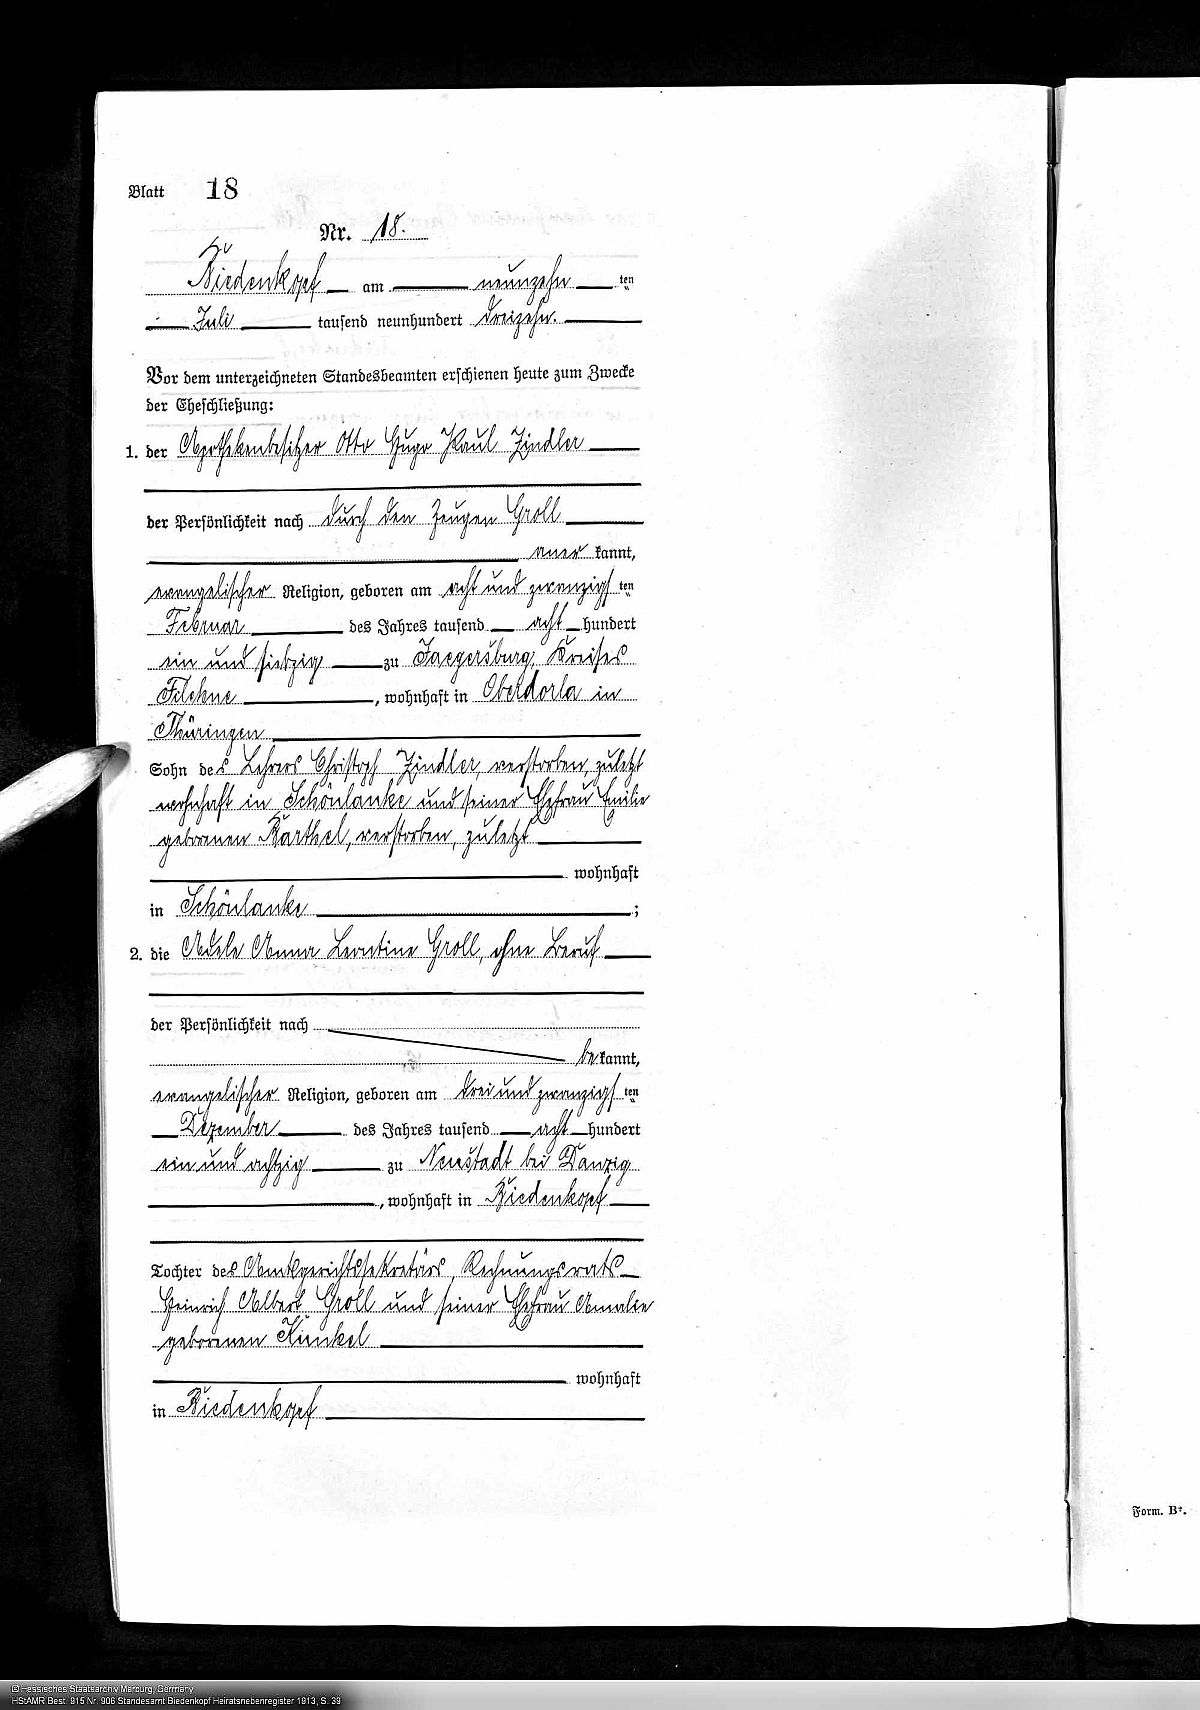 Blatt 18
Nr. 18.
Biedenkopf am neunzehn ten
Juli tausend neunhundert dreizehn.
Vor dem unterzeichneten Standesbeamten erschienen heute zum Zwecke
der Eheschließung:
1. der Apothekenbesitzer Otto Hugo Paul Zindler
der Persönlichkeit nach durch den Zeugen Groll
aner kannt,
evangelischer Religion, geboren am acht und zwanzigs ten
Februar des Jahres tausend acht hundert
ein und siebzig zu Jaegersburg, Kreises
Filehne, wohnhaft in Oberdorla in
Thüringen
Sohn des Lehrers Christoph Zindler, verstorben, zuletzt
wohnhaft in Schönlanke und seiner Ehefrau Emilie
geborenen Barthel, verstorben, zuletzt
wohnhaft
in Schönlanke ;
2. die Adele Anna Leontine Groll, ohne Beruf
der Persönlichkeit nach
be kannt,
evangelischer Religion, geboren am drei und zwanzigs ten
Dezember des Jahres tausend acht hundert
ein und achtzig zu Neustadt bei Danzig
, wohnhaft in Biedenkopf
Tochter des Amtsgerichtssekretärs, Rechnungsrats
Heinrich Albert Groll und seiner Ehefrau Amalie
geborenen Künkel
wohnhaft
in Biedenkopf
Form. B¹.
© Hessisches Staatsarchiv Marburg, Germany
HStAMR Best. 915 Nr. 906 Standesamt Biedenkopf Heiratsnebenregister 1913, S. 39